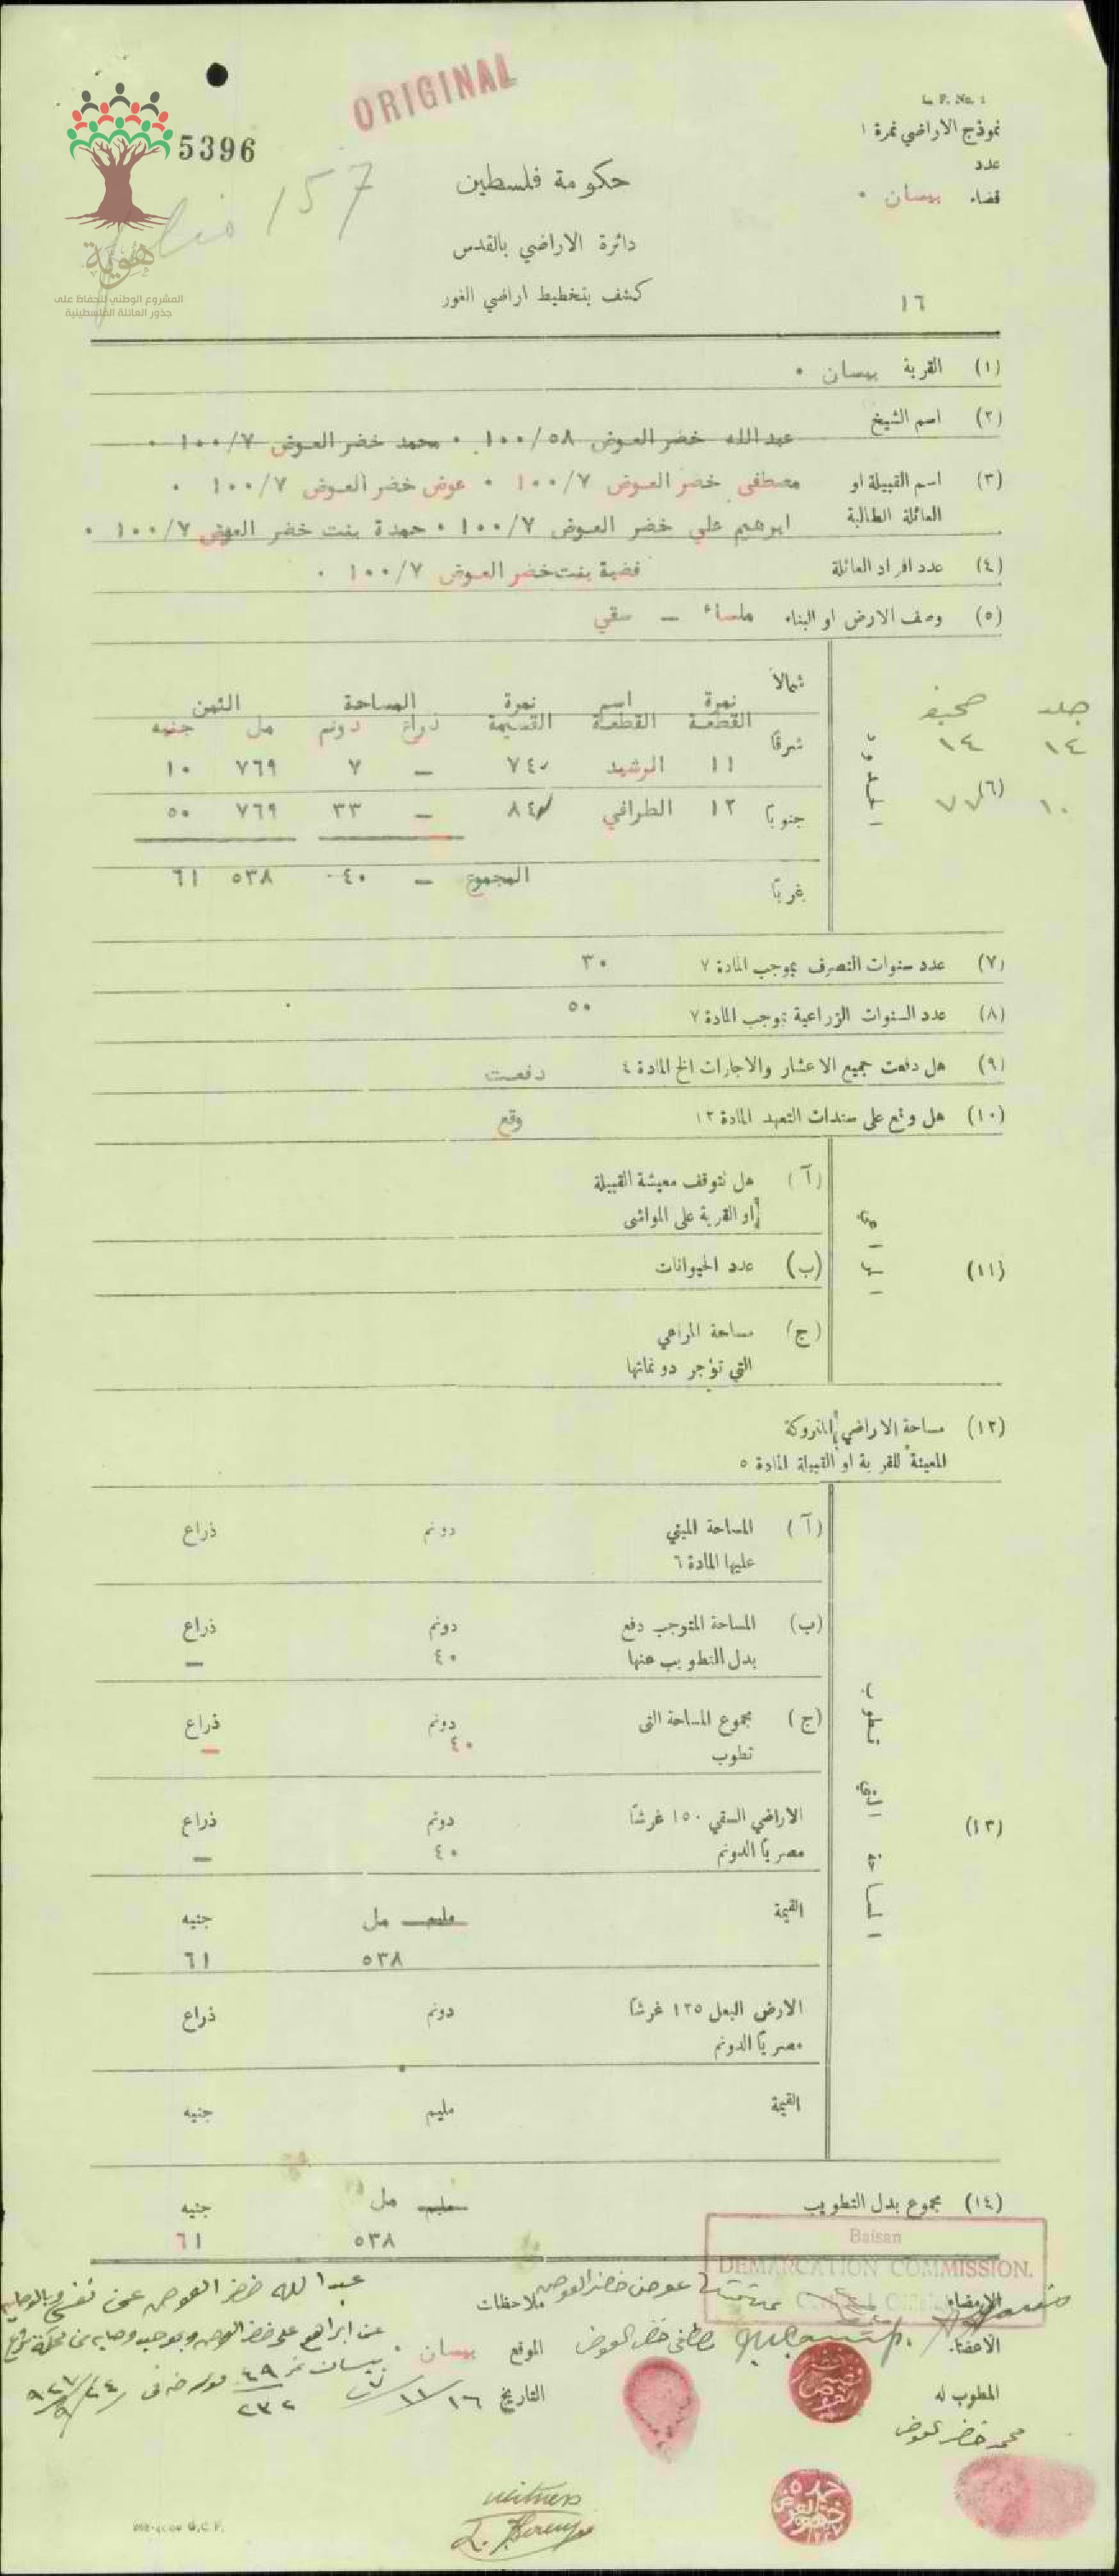 ORIGINAL
L. F. No. 1
نموذج الاراضي نمرة ١
5396
عدد
قضاء بيسان .
157
حكومة فلسطين
دائرة الاراضي بالقدس
كشف بتخطيط اراضي الغور
١٦
هوية
المشروع الوطني للحفاظ على
جذور العائلة الفلسطينية
(١) القرية بيسان .
(٢) اسم الشيخ
عبدالله خضر العوض ١٠٠/٥٨ . محمد خضر العوض ١٠٠/٧ .
(٣) اسم القبيلة او مصطفى خضر العوض ١٠٠/٧ . عوض خضر العوض ١٠٠/٧ .
العائلة الطالبة ابرهيم علي خضر العوض ١٠٠/٧ . حمدة بنت خضر العوض ١٠٠/٧ .
(٤) عدد افراد العائلة فضية بنت خضر العوض ١٠٠/٧ .
(٥) وصف الارض او البناء ملساء – سقي
جلد صحيفة
١٤ ١٤
١٠ ٧٧
(٦) الحدود
شمالاً
شرقاً
جنوباً
غرباً
نمرة اسم نمرة المساحة الثمن
القطعة القطعة القسيمة ذراع دونم مل جنيه
١١ الرشيد ٧٤ – ٧ ٧٦٩ ١٠
١٢ الطرافي ٨٤ – ٣٣ ٧٦٩ ٥٠
المجموع – ٤٠ ٥٣٨ ٦١
(٧) عدد سنوات التصرف بموجب المادة ٧ ٣٠
(٨) عدد السنوات الزراعية بموجب المادة ٧ ٥٠
(٩) هل دفعت جميع الاعشار والاجارات الخ المادة ٤ دفعت
(١٠) هل وقع على سندات التعهد المادة ١٢ وقع
(١١)
(آ) هل تتوقف معيشة القبيلة
او القرية على المواشي
(ب) عدد الحيوانات
(ج) مساحة المراعي
التي تؤجر دونماتها
(١٢) مساحة الاراضي المتروكة
المعينة للقرية او القبيلة المادة ٥
(١٣)
(آ) المساحة المبني دونم ذراع
عليها المادة ٦
(ب) المساحة المتوجب دفع دونم ذراع
بدل التطويب عنها ٤٠ –
(ج) مجموع المساحة التي دونم ذراع
تطوب ٤٠ –
الاراضي السقي ١٥٠ غرشاً دونم ذراع
مصرياً الدونم ٤٠ –
القيمة مليم مل جنيه
٥٣٨ ٦١
الارض البعل ١٢٥ غرشاً دونم ذراع
مصرياً الدونم
القيمة مليم جنيه
(١٤) مجموع بدل التطويب مليم مل جنيه
٥٣٨ ٦١
Baisan
DEMARCATION COMMISSION.
الامضاء
الاعضاء
عوض خضر العوض
مصطفى خضر العوض
ملاحظات
عبدالله خضر العوض عن نفسي وبالوصاية
عن ابراهيم علي خضر العوض وبموجب وصاية من محكمة شرع
بيسان نمرة ٤٩/٢٣٢
الموقع بيسان .
التاريخ ١٦/١١/
المطوب له
محمد خضر العوض
witness